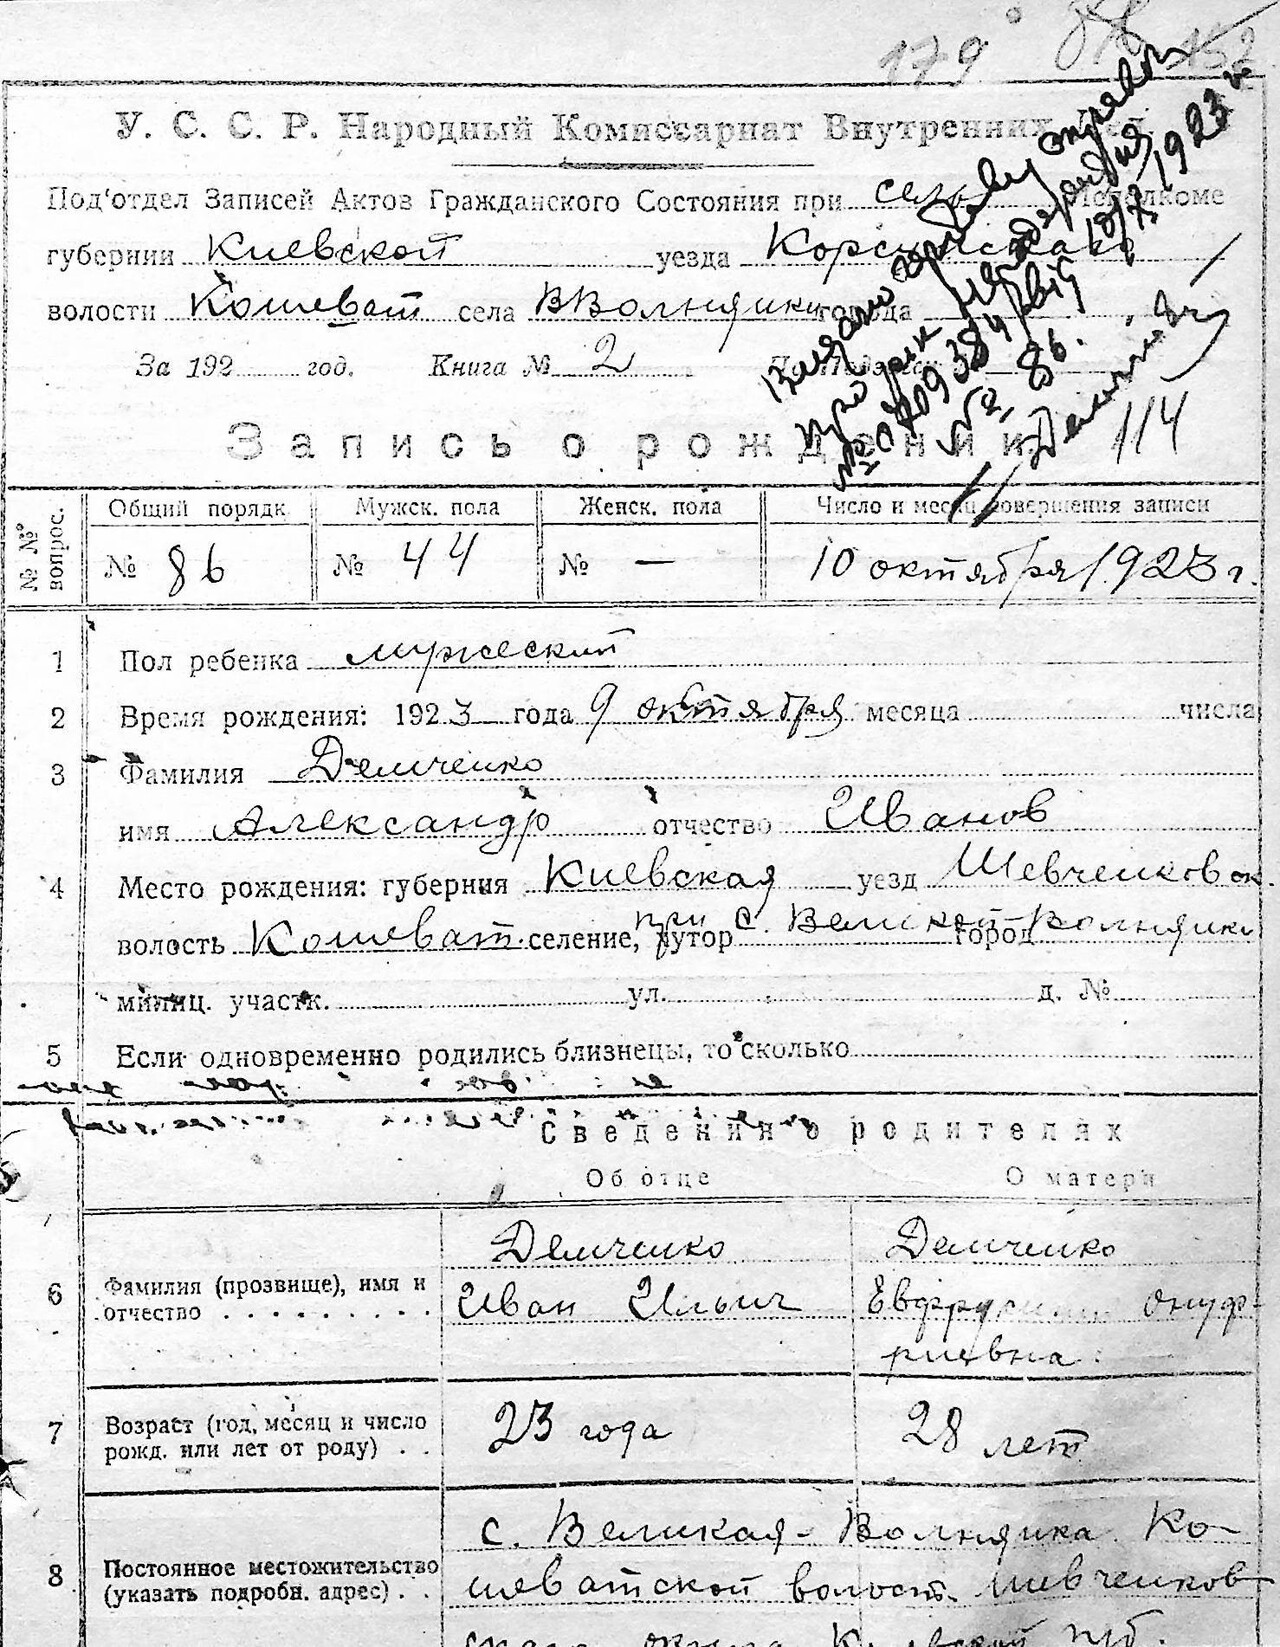 179
152
У. С. С. Р. Народный Комиссариат Внутренних Дел.
Под'отдел Записей Актов Гражданского Состояния при сель Исполкоме
губернии Киевской уезда
волости Кошеват села В Волнянки города
За 192 год. Книга № 2
1923
№ 86.
114
Запись о рождении
№ № вопрос.
Общий порядк. Мужск. пола Женск. пола Число и месяц совершения записи
№ 86 № 44 № — 10 октября 1923 г.
1 Пол ребенка мужеский
2 Время рождения: 1923 года 9 октября месяца числа
3 Фамилия Демченко
имя Александр отчество Иванов
4 Место рождения: губерния Киевская уезд Шевченков ок.
волость Кошеват. селение, хутор при с. Великой Волнянки город
милиц. участк. ул. д. №
5 Если одновременно родились близнецы, то сколько
Сведения о родителях
Об отце О матери
6 Фамилия (прозвище), имя и отчество
Демченко Иван Ильич
Демченко Онуф-
риевна.
7 Возраст (год, месяц и число рожд. или лет от роду)
23 года 28 лет
8 Постоянное местожительство (указать подробн. адрес)
с. Великая-Волнянка Ко-
шеватской волост. Шевченков-
ского округа Киевской губ.